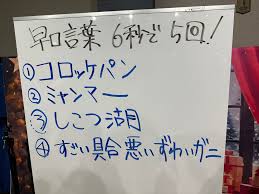 早口言葉 6秒で5回!
①コロッケパン
②ミャンマー
③しこつ湖
④すごい具合悪いずわいガニ